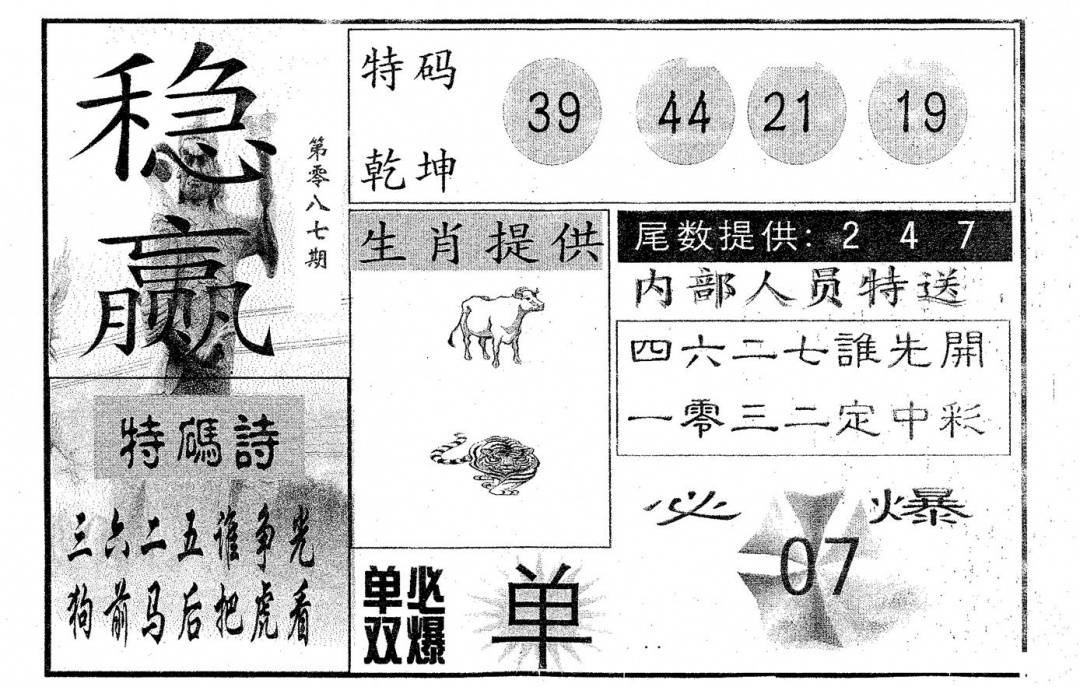 稳
赢
第零八七期
特码
乾坤
39 44 21 19
生肖提供
尾数提供: 2 4 7
内部人员特送
四六二七誰先開
一零三二定中彩
特碼詩
三六二五谁争光
狗前马后把虎看
单双
必爆
单
必爆
07